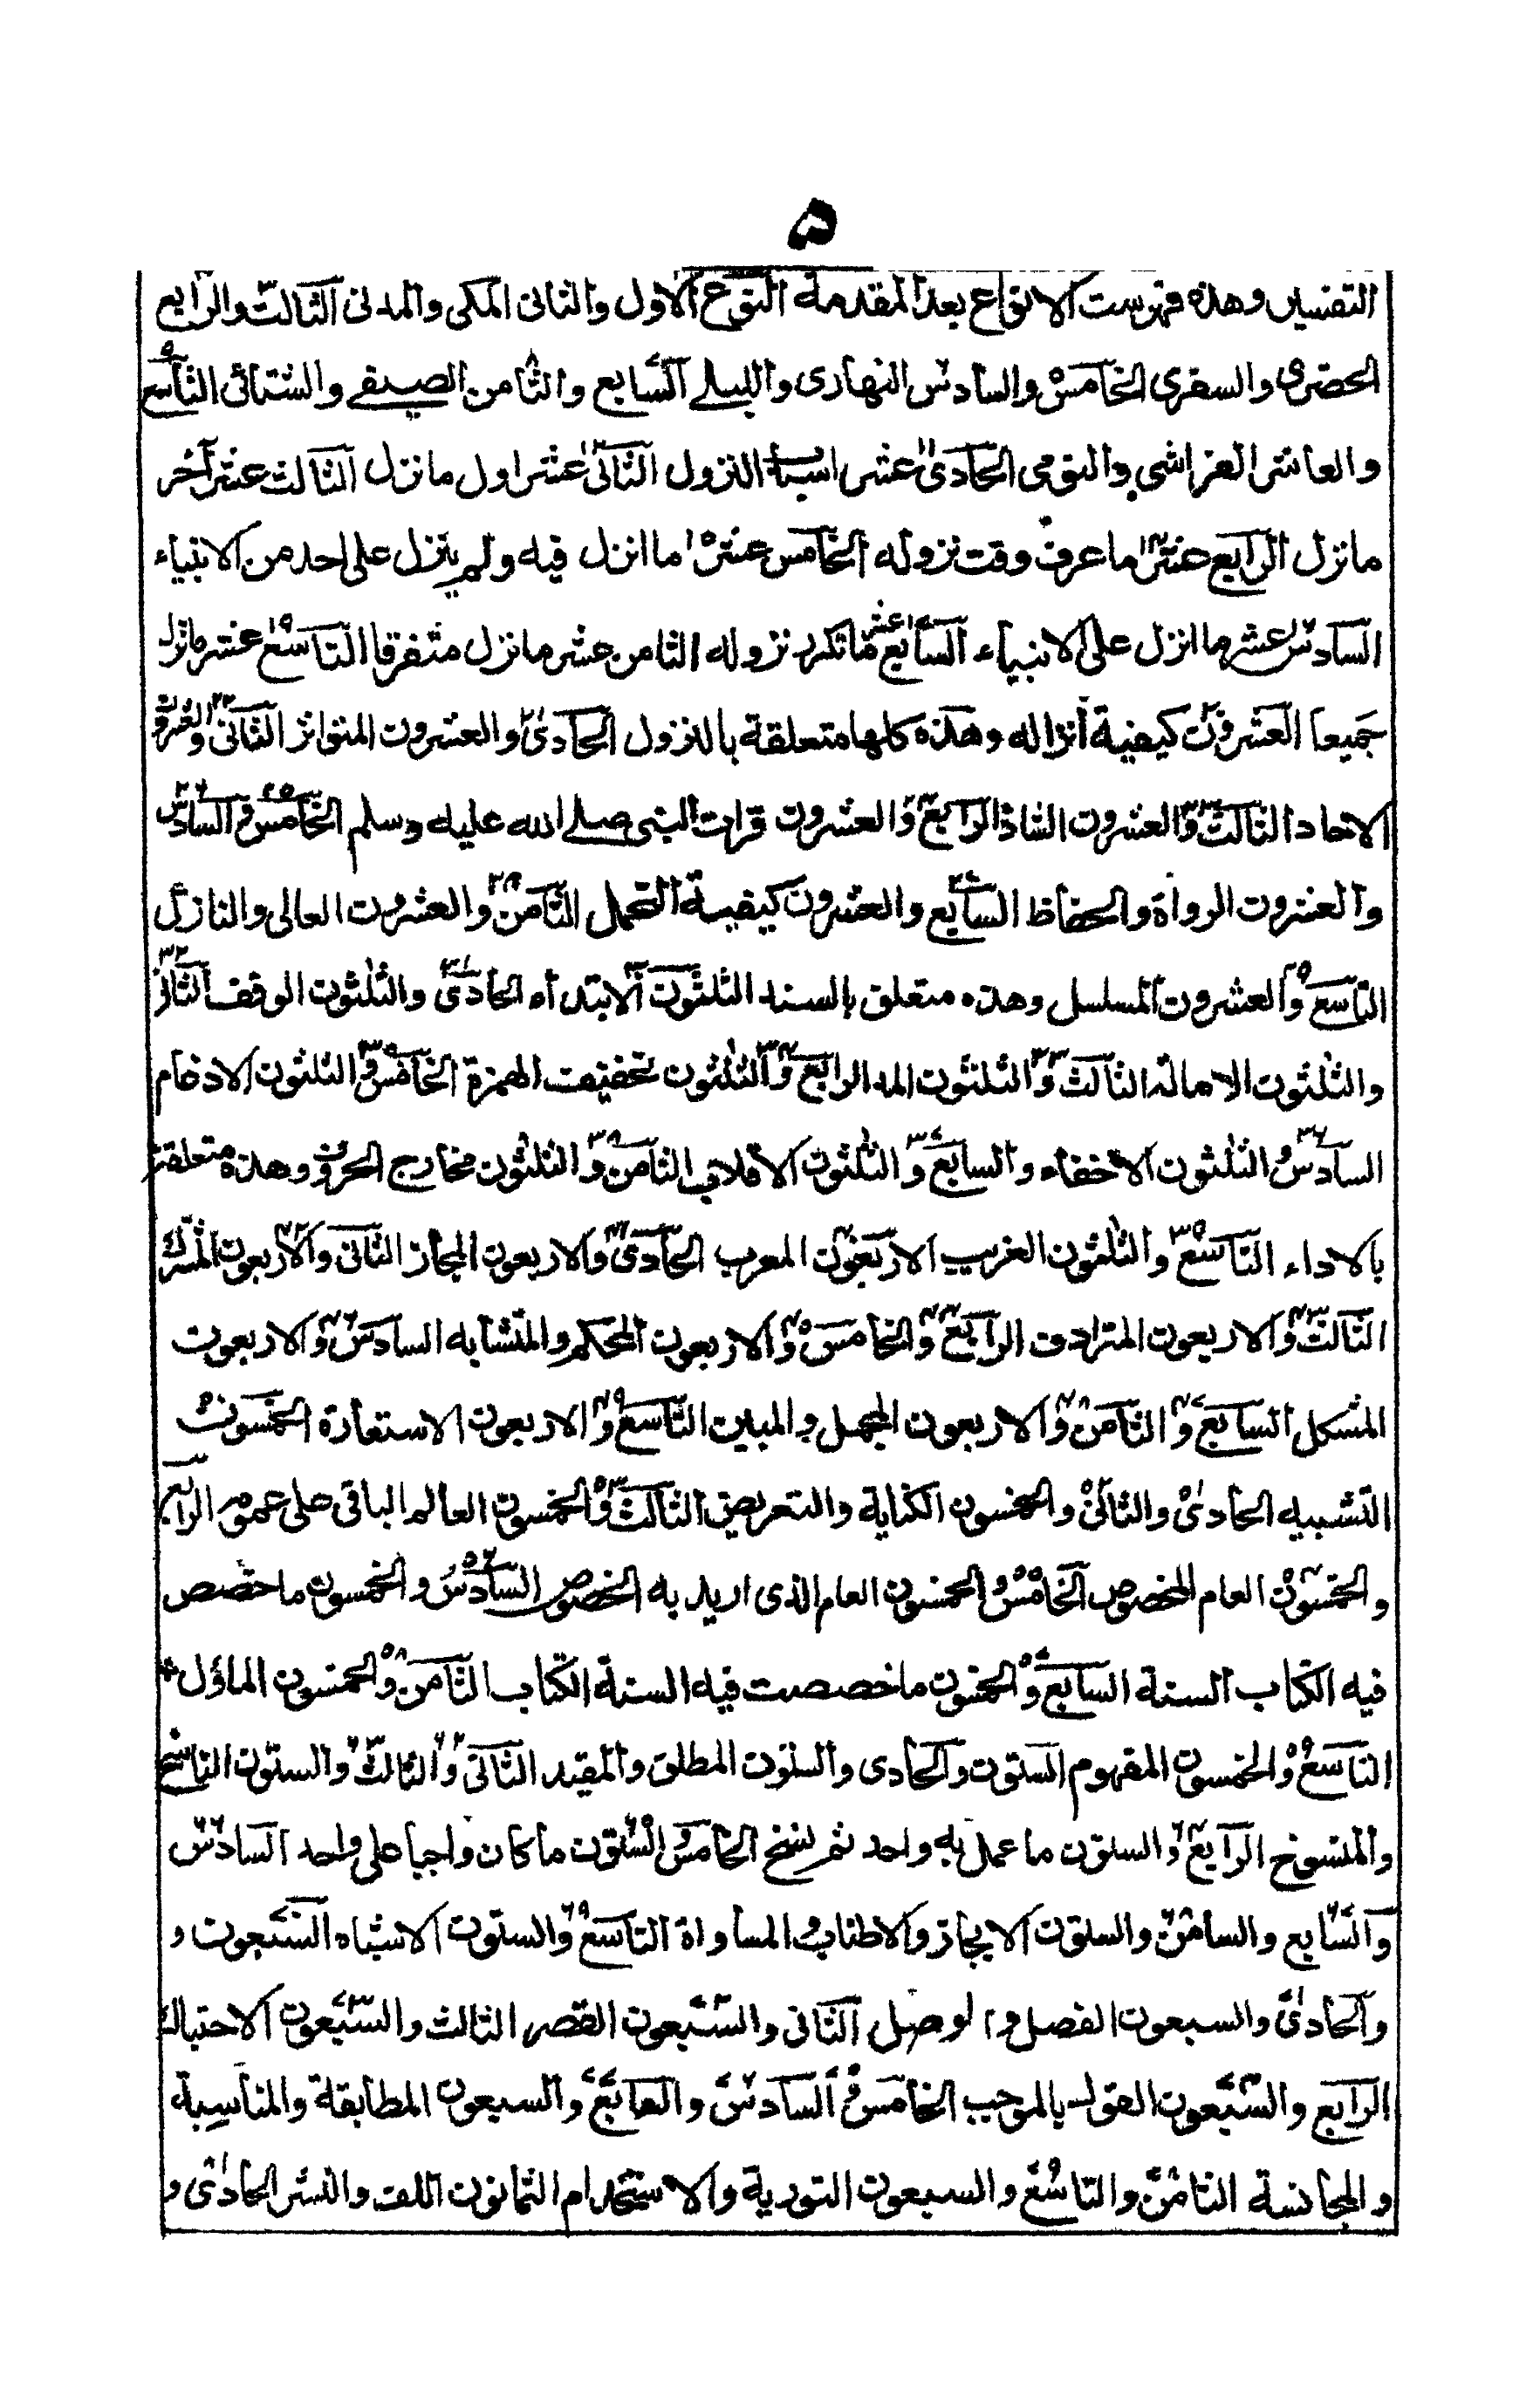 ۵
التفسير وهذه فهرست الانواع بعد المقدمة النوع الاول والثانى المكى والمدنى الثالث والرابع
الحضرى والسفرى الخامس والسادس النهارى والليلے السابع والثامن الصيفے والشتائى التاسع
والعاشر الفراشى والنومى الحادى عشر اسباب النزول الثانى عشر اول ما نزل الثالث عشر آخر
ما نزل الرابع عشر ما عرف وقت نزوله الخامس عشر ما انزل فيه ولم ينزل على احد من الانبياء
السادس عشر ما انزل على الانبياء السابع عشر ما تكرر نزوله الثامن عشر ما نزل متفرقا التاسع عشر ما نزل
جميعا العشرون كيفية انزاله وهذه كلها متعلقة بالنزول الحادى والعشرون المتواتر الثانى والعشرون
الاحاد الثالث والعشرون الشاذ الرابع والعشرون قرات النبى صلے الله عليه وسلم الخامس والسادس
والعشرون الرواة والحفاظ السابع والعشرون كيفية التحمل الثامن والعشرون العالى والنازل
التاسع والعشرون المسلسل وهذه متعلق بالسند الثلثون الابتداء الحادى والثلثون الوقف الثانى
والثلثون الامالة الثالث والثلثون المد الرابع والثلثون تخفيف الهمزة الخامس والثلثون الادغام
السادس والثلثون الاخفاء والسابع والثلثون الاقلاب الثامن والثلثون مخارج الحروف وهذه متعلقة
بالاداء التاسع والثلثون الغريب الاربعون المعرب الحادى والاربعون المجاز الثانى والاربعون المشترك
الثالث والاربعون المترادف الرابع والخامس والاربعون المحكم والمتشابه السادس والاربعون
المشكل السابع والثامن والاربعون المجمل والمبين التاسع والاربعون الاستعارة الخمسون
التشبيه الحادى والثانى والخمسون الكناية والتعريض الثالث والخمسون العالم الباقى على عمومه الرابع
والخمسون العام المخصوص الخامس والخمسون العام الذى اريد به الخصوص السادس والخمسون ما خصص
فيه الكتاب السنة السابع والخمسون ما خصصت فيه السنة الكتاب الثامن والخمسون الماؤل
التاسع والخمسون المفهوم الستون والحادى والستون المطلق والمقيد الثانى والثالث والستون الناسخ
والمنسوخ الرابع والستون ما عمل به واحد ثم نسخ الخامس والستون ما كان واجبا على واحد السادس
والسابع والسامن والستون الايجاز والاطناب والمساواة التاسع والستون الاشباه السبعون و
والحادى والسبعون الفصل والوصل الثانى والسبعون القصر الثالث والسبعون الاحتباك
الرابع والسبعون القول بالموجب الخامس والسادس والسابع والسبعون المطابقة والمناسبة
والمجانسة الثامن والتاسع والسبعون التورية والاستخدام الثمانون اللف والنشر الحادى و